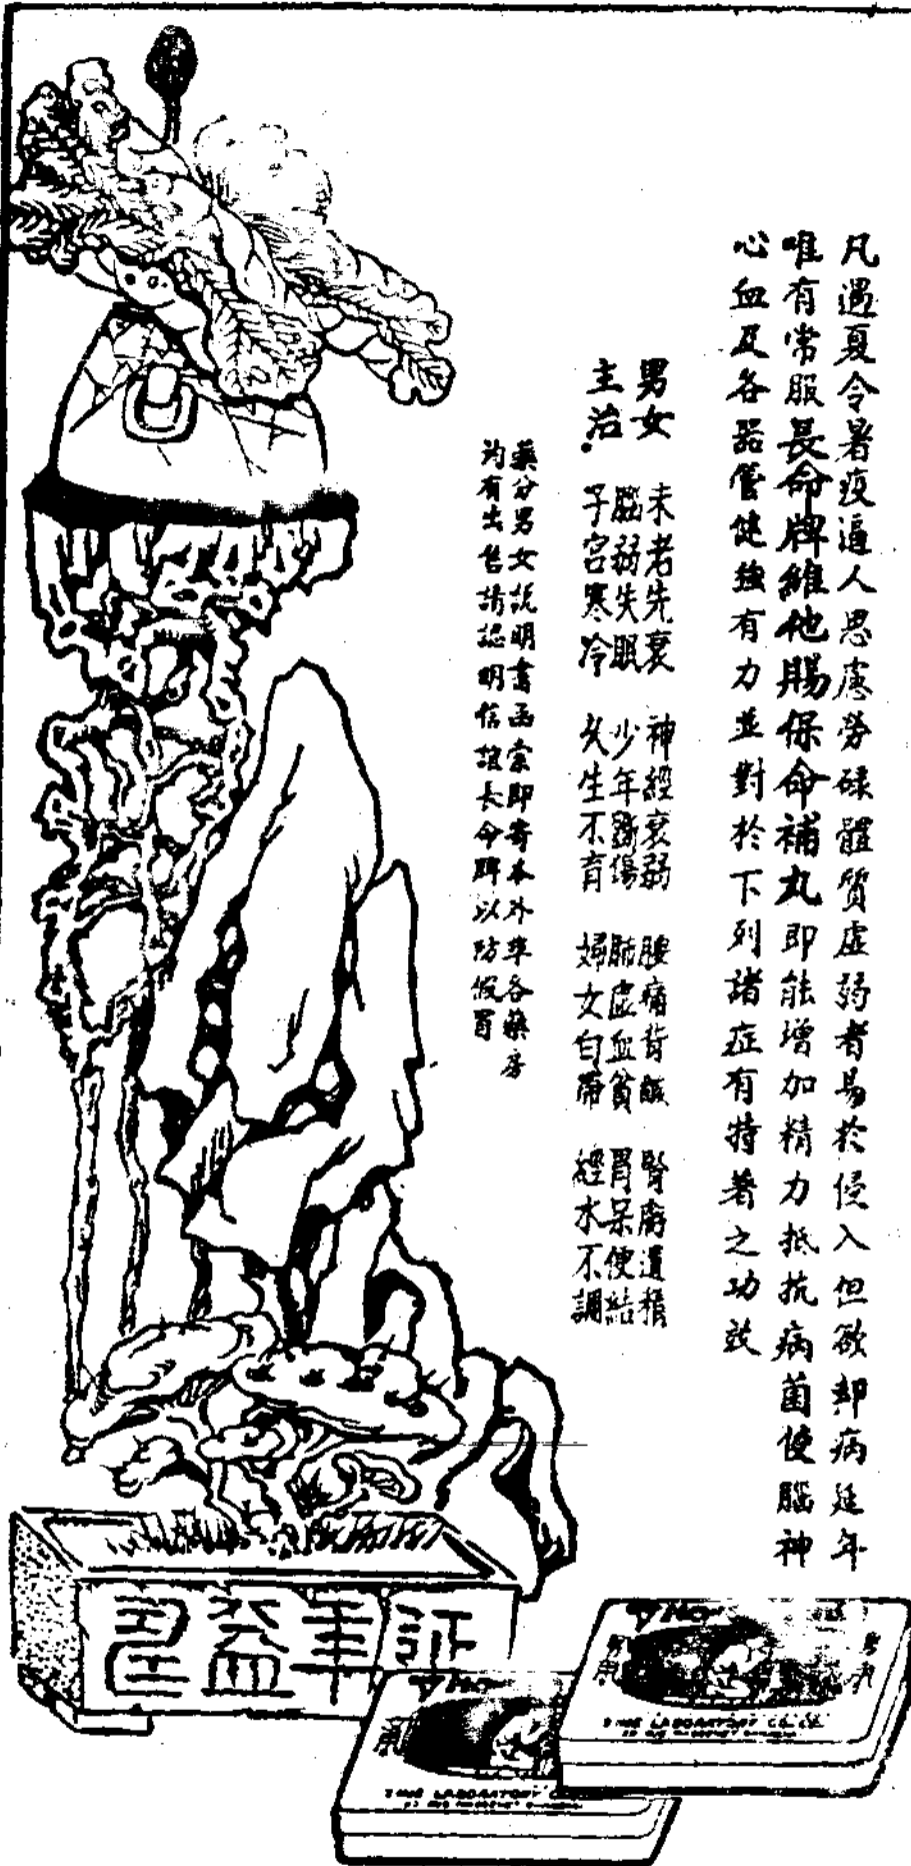 凡遇夏令暑疫逼人思慮勞碌體質虛弱者易於侵入但欲却病延年
唯有常服長命牌維他賜保命補丸即能增加精力抵抗病菌使腦神
心血及各器管健強有力並對於下列諸症有特著之功效
男女
主治
未老先衰 神經衰弱 腰痛背酸 腎虧遺精
腦弱失眠 少年斵傷 肺虛血貧 胃呆便結
子宮寒冷 久生不育 婦女白帶 經水不調
藥分男女說明書函索即寄本外埠各藥房
均有出售請認明信誼長命牌以防假冒
延年益
LABORATORY
LABORATORY